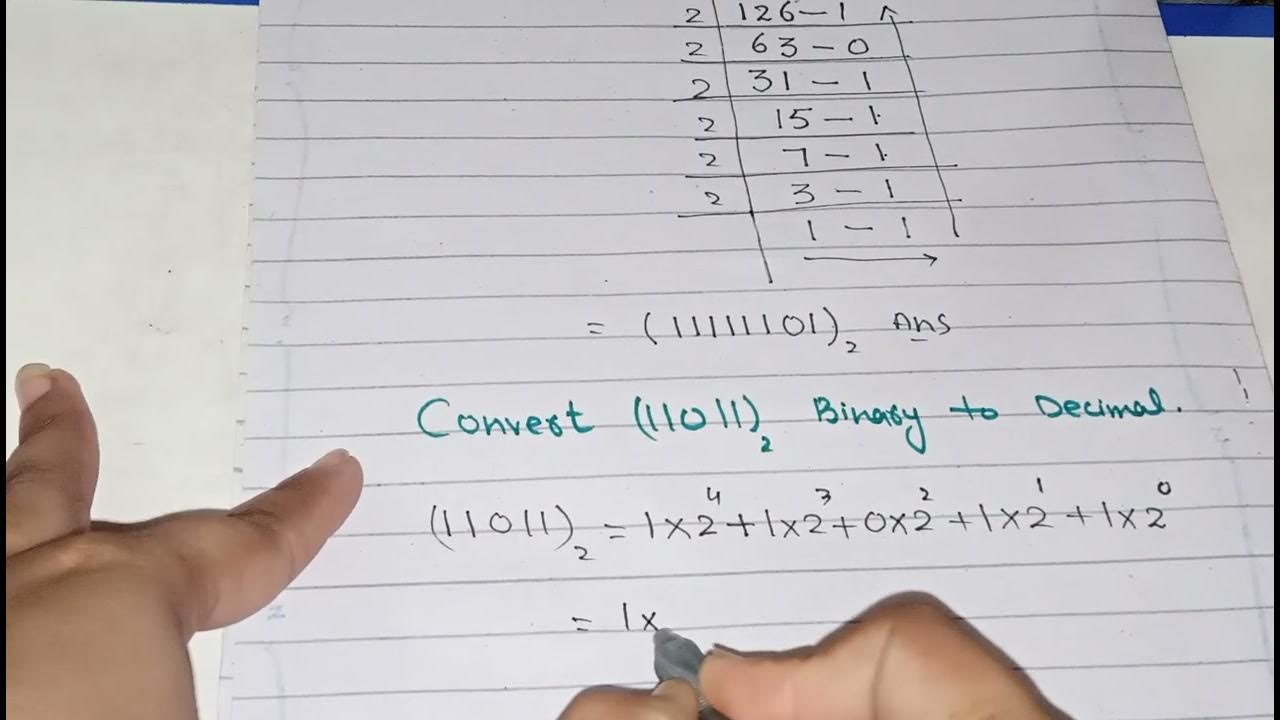 2 126 - 1
2 63 - 0
2 31 - 1
2 15 - 1
2 7 - 1
2 3 - 1
1 - 1
= (11111101)₂ Ans
Convert (11011)₂ Binary to Decimal.
(11011)₂ = 1×2⁴ + 1×2³ + 0×2² + 1×2¹ + 1×2⁰
= 1×